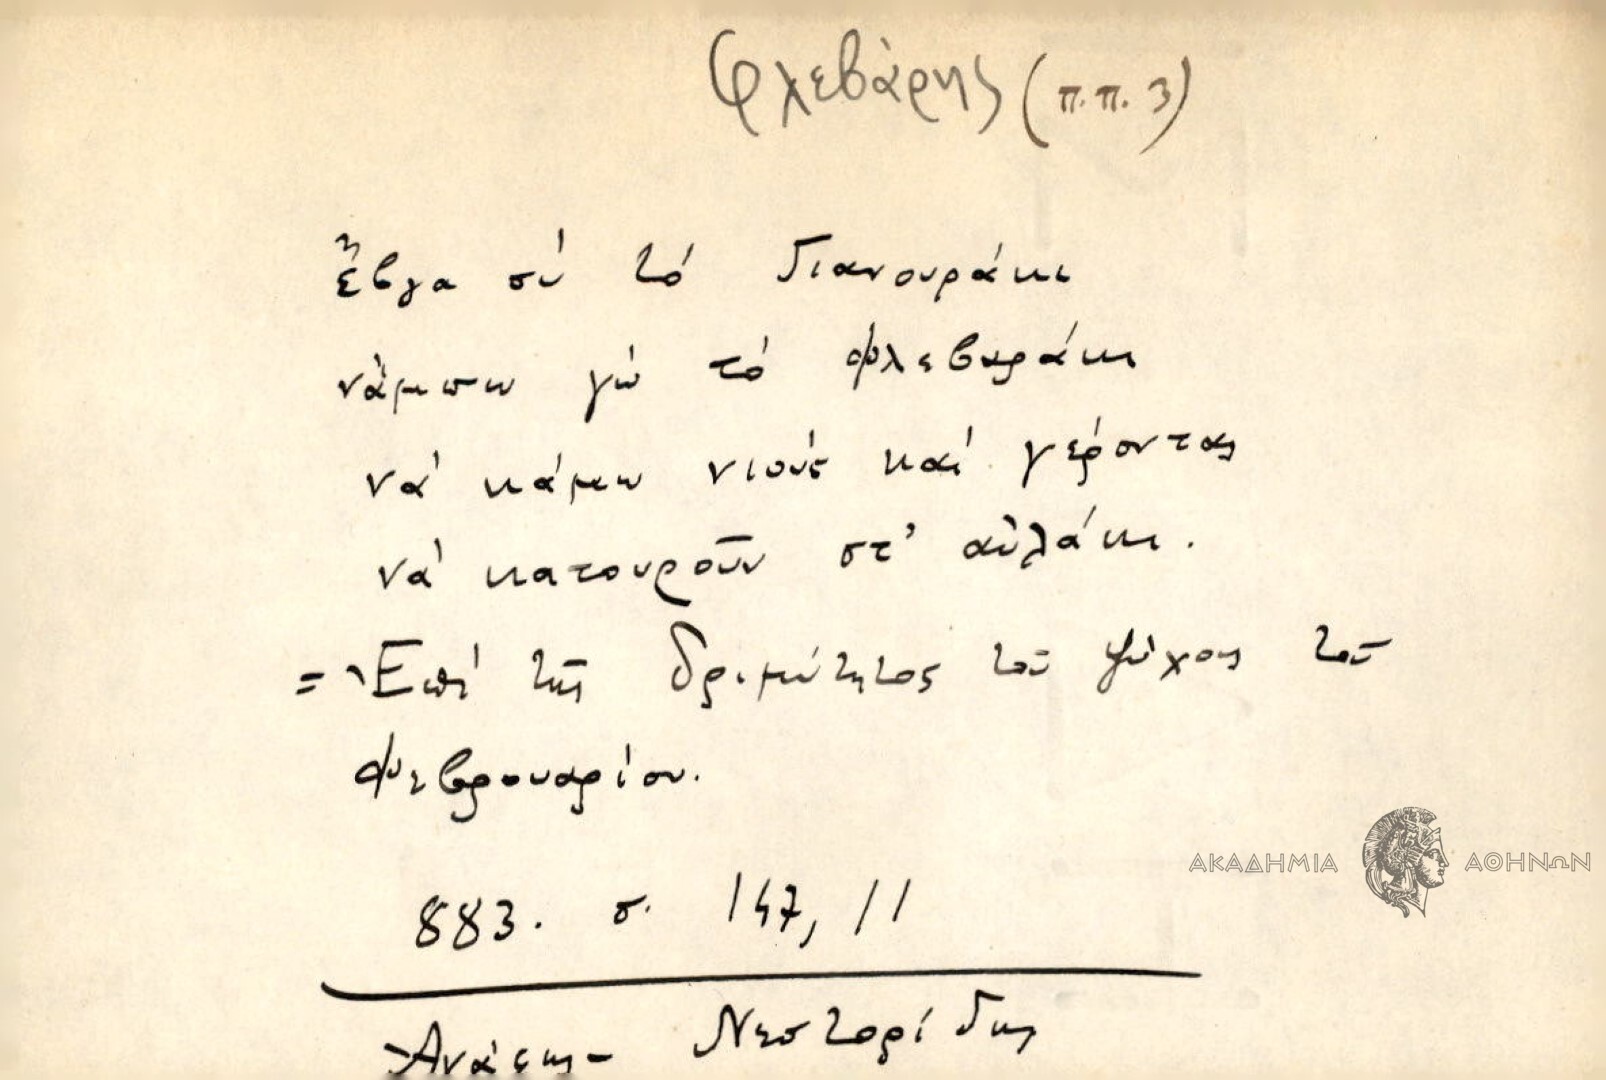 Φλεβάρης (π.π. 3)
Ἔβγα σύ τό Γιανουράκι
νἄμπω γώ τό φλεβαράκι
νά κάμω νιούς καί γέροντας
νά κατουροῦν στ' αὐλάκι.
= Ἐπί τῆς δριμύτητος τοῦ ψύχους τοῦ
Φεβρουαρίου.
883. σ. 147, 11
Νεστορίδης
ΑΚΑΔΗΜΙΑ ΑΘΗΝΩΝ